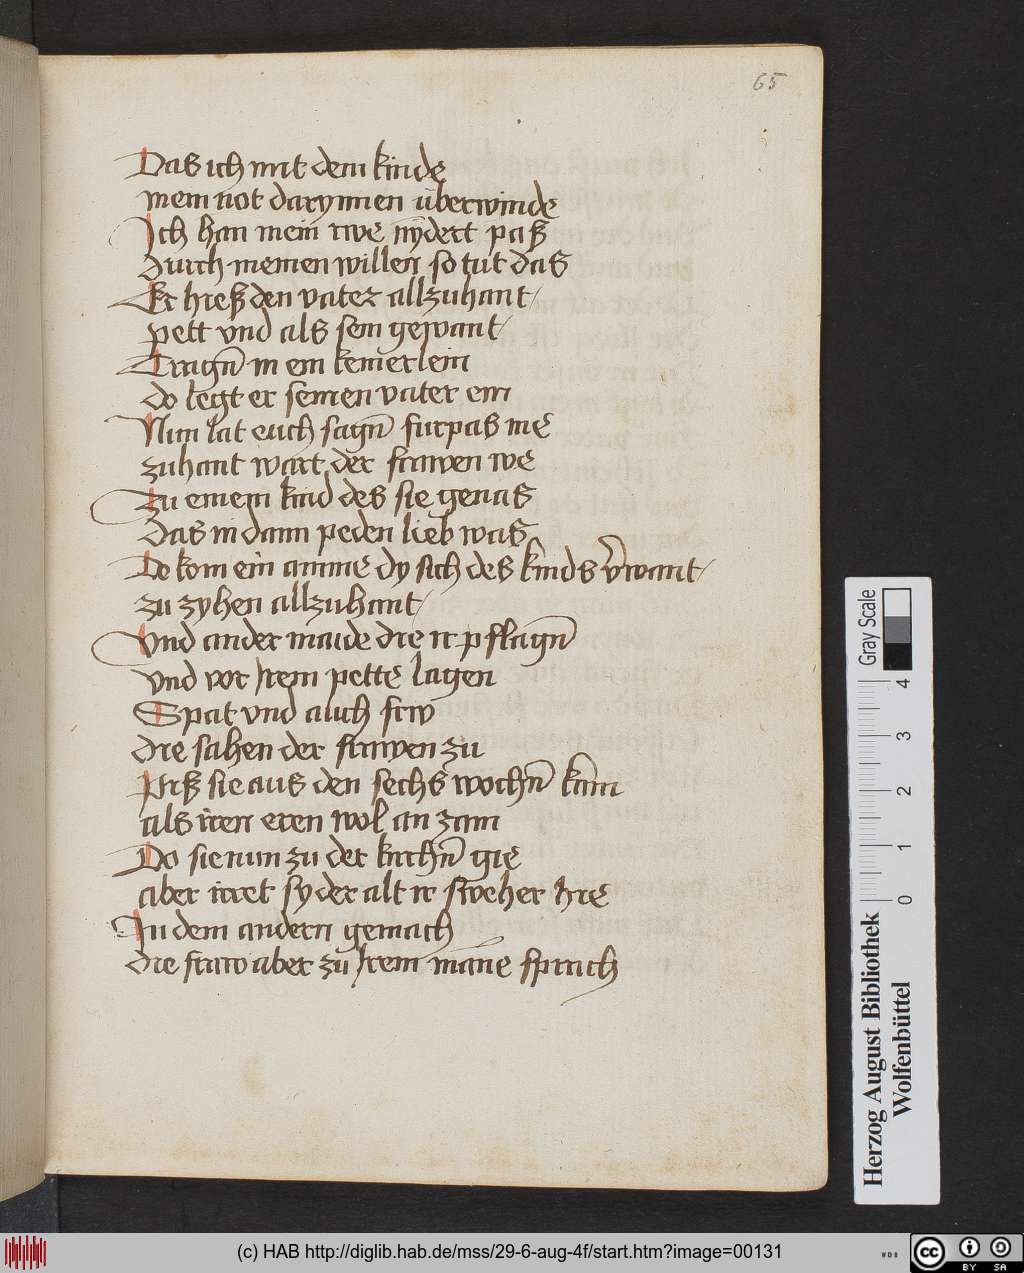 65
Das ich mit dem kinde
mein not darynnen überwinde
Ich han mein rwe nydert paß
durch meinen willen so tut das
Er hieß den vater allzuhant
pett vnd als sein gewant
Tragn̄ in ein kemerlein
do legt er seinen vater ein
Nun lat euch sagn̄ furpas me
zuhant wart der frawen we
Zu einem kind des sie genas
Das in dann peden lieb was
Do kom ein amme dy sich des kinds v̄want
zu zyhen allzuhant
Vnd ander maide die ir pflagn̄
vnd vor irem pette lagen
Spat vnd auch frw
die sahen der frawen zu
Piß sie aus den sechs wochn̄ kam
als iren eren wol an zam
Do sie nun zu der kirchn̄ gie
aber irret sy der alt ir sweher hie
In dem andern gemach
die fraw aber zu irem manne sprach
Gray Scale
0 1 2 3 4
Herzog August Bibliothek
Wolfenbüttel
(c) HAB http://diglib.hab.de/mss/29-6-aug-4f/start.htm?image=00131
WDB
cc BY SA